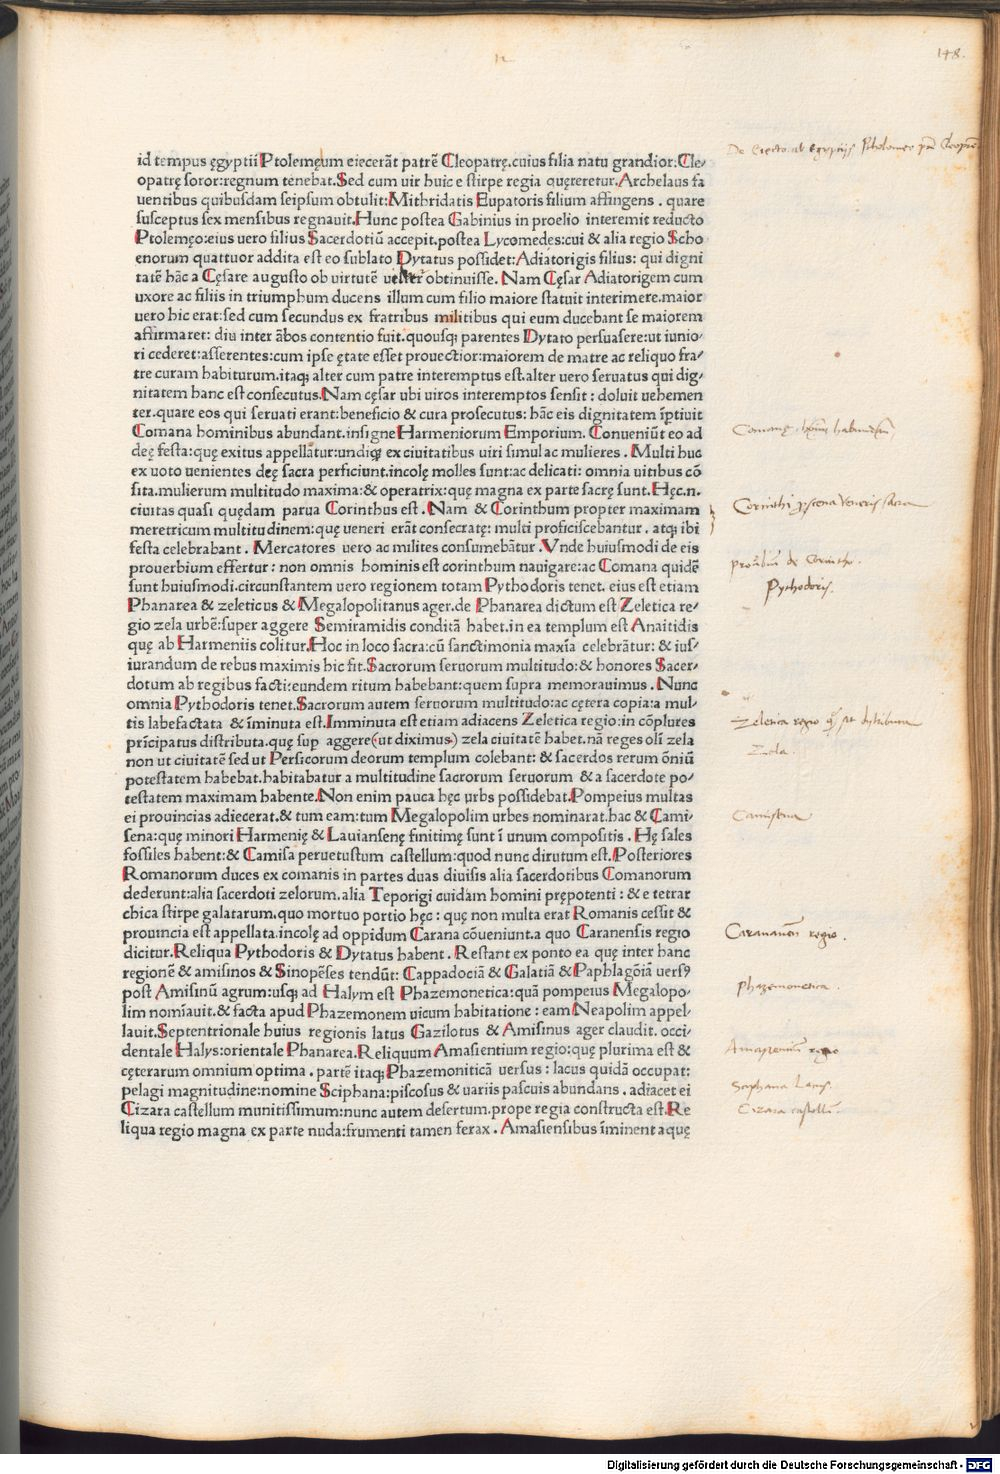 12
148.
id tempus ęgyptii Ptolemęum eiecerāt patrē Cleopatrę.cuius filia natu grandior:Cle-
opatrę soror:regnum tenebat.Sed cum uir huic e stirpe regia quęreretur.Archelaus fa
uentibus quibusdam seipsum obtulit:Mithridatis Eupatoris filium affingens . quare
susceptus sex mensibus regnauit.Hunc postea Gabinius in proelio interemit reducto
Ptolemęo:eius uero filius Sacerdotiū accepit.postea Lycomedes:cui & alia regio Scho
enorum quattuor addita est eo sublato Dytatus possidet:Adiatorigis filius: qui digni
tatē hāc a Cęsare augusto ob uirtutē obtinuisse. Nam Cęsar Adiatorigem cum
uxore ac filiis in triumphum ducens illum cum filio maiore statuit interimere.maior
uero hic erat:sed cum secundus ex fratribus militibus qui eum ducebant se maiorem
affirmaret: diu inter ābos contentio fuit.quousq; parentes Dytato persuasere:ut iunio-
ri cederet:asserentes:cum ipse ętate esset prouectior:maiorem de matre ac reliquo fra-
tre curam habiturum.itaq; alter cum patre interemptus est.alter uero seruatus qui dig-
nitatem hanc est consecutus.Nam cęsar ubi uiros interemptos sensit : doluit uehemen
ter.quare eos qui seruati erant:beneficio & cura prosecutus: hāc eis dignitatem īptiuit
Comana hominibus abundant.insigne Harmeniorum Emporium. Conueniūt eo ad
deę festa:quę exitus appellātur:undiq; ex ciuitatibus uiri simul ac mulieres . Multi huc
ex uoto uenientes deę sacra perficiunt.incolę molles sunt:ac delicati: omnia uitibus cō
sita.mulierum multitudo maxima:& operatrix:quę magna ex parte sacrę sunt.Hęc.n.
ciuitas quasi quędam parua Corinthus est . Nam & Corinthum propter maximam
meretricum multitudinem:quę ueneri erāt consecratę: multi proficiscebantur . atq; ibi
festa celebrabant . Mercatores uero ac milites consumebātur .Vnde huiusmodi de eis
prouerbium effertur : non omnis hominis est corinthum nauigare:ac Comana quidē
sunt huiusmodi.circunstantem uero regionem totam Pythodoris tenet. eius est etiam
Phanarea & zeleticus & Megalopolitanus ager.de Phanarea dictum est Zeletica re-
gio zela urbē:super aggere Semiramidis conditā habet.in ea templum est Anaitidis
quę ab Harmeniis colitur.Hoc in loco sacra:cū sanctimonia maxīa celebrātur: & ius-
iurandum de rebus maximis hic fit.Sacrorum seruorum multitudo:& honores Sacer-
dotum ab regibus facti:eundem ritum habebant:quem supra memorauimus . Nunc
omnia Pythodoris tenet.Sacrorum autem seruorum multitudo:ac cętera copia:a mul-
tis labefactata & īminuta est.Imminuta est etiam adiacens Zeletica regio:in cōplures
prīcipatus distributa.quę sup aggere(ut diximus) zela ciuitatē habet.nā reges olī zela
non ut ciuitatē sed ut Persicorum deorum templum colebant: & sacerdos rerum ōniū
potestatem habebat.habitabatur a multitudine sacrorum seruorum & a sacerdote po-
testatem maximam habente.Non enim pauca hęc urbs possidebat.Pompeius multas
ei prouincias adiecerat.& tum eam:tum Megalopolim urbes nominarat.hac & Cami-
sena:quę minori Harmenię & Lauiansenę finitimę sunt ī unum compositis . Hę sales
fossiles habent:& Camisa peruetustum castellum:quod nunc dirutum est.Posteriores
Romanorum duces ex comanis in partes duas diuisis alia sacerdotibus Comanorum
dederunt:alia sacerdoti zelorum.alia Teporigi cuidam homini prępotenti : & e tetrar
chica stirpe galatarum.quo mortuo portio hęc : quę non multa erat Romanis cessit &
prouincia est appellata.incolę ad oppidum Carana cōueniunt.a quo Caranensis regio
dicitur.Reliqua Pythodoris & Dytatus habent . Restant ex ponto ea quę inter hanc
regionē & amisinos & Sinopēses tendūt: Cappadociā & Galatiā & Paphlagōiā uersꝰ
post Amisinū agrum:usq; ad Halym est Phazemonetica:quā pompeius Megalopo-
lim nomīauit.& facta apud Phazemonem uicum habitatione : eam Neapolim appel-
lauit.Septentrionale huius regionis latus Gazilotus & Amisinus ager claudit. occi-
dentale Halys:orientale Phanarea.Reliquum Amasientium regio:quę plurima est &
cęterarum omnium optima . partē itaq; Phazemoniticā uersus : lacus quidā occupat:
pelagi magnitudine:nomine Sciphana:piscosus & uariis pascuis abundans . adiacet ei
Cizara castellum munitissimum:nunc autem desertum.prope regia constructa est.Re
liqua regio magna ex parte nuda:frumenti tamen ferax . Amasiensibus īminent aquę
De eiecto ab Egyptijs Ptholomeo
Comanę
Corinthi Veneris sacra
de Corintho.
Pythodoris.
Zeletica regio
Zela.
Camisena
regio.
Phazemonetica.
regio
Saphana Lacus.
Cizara castellū
Digitalisierung gefördert durch die Deutsche Forschungsgemeinschaft - DFG